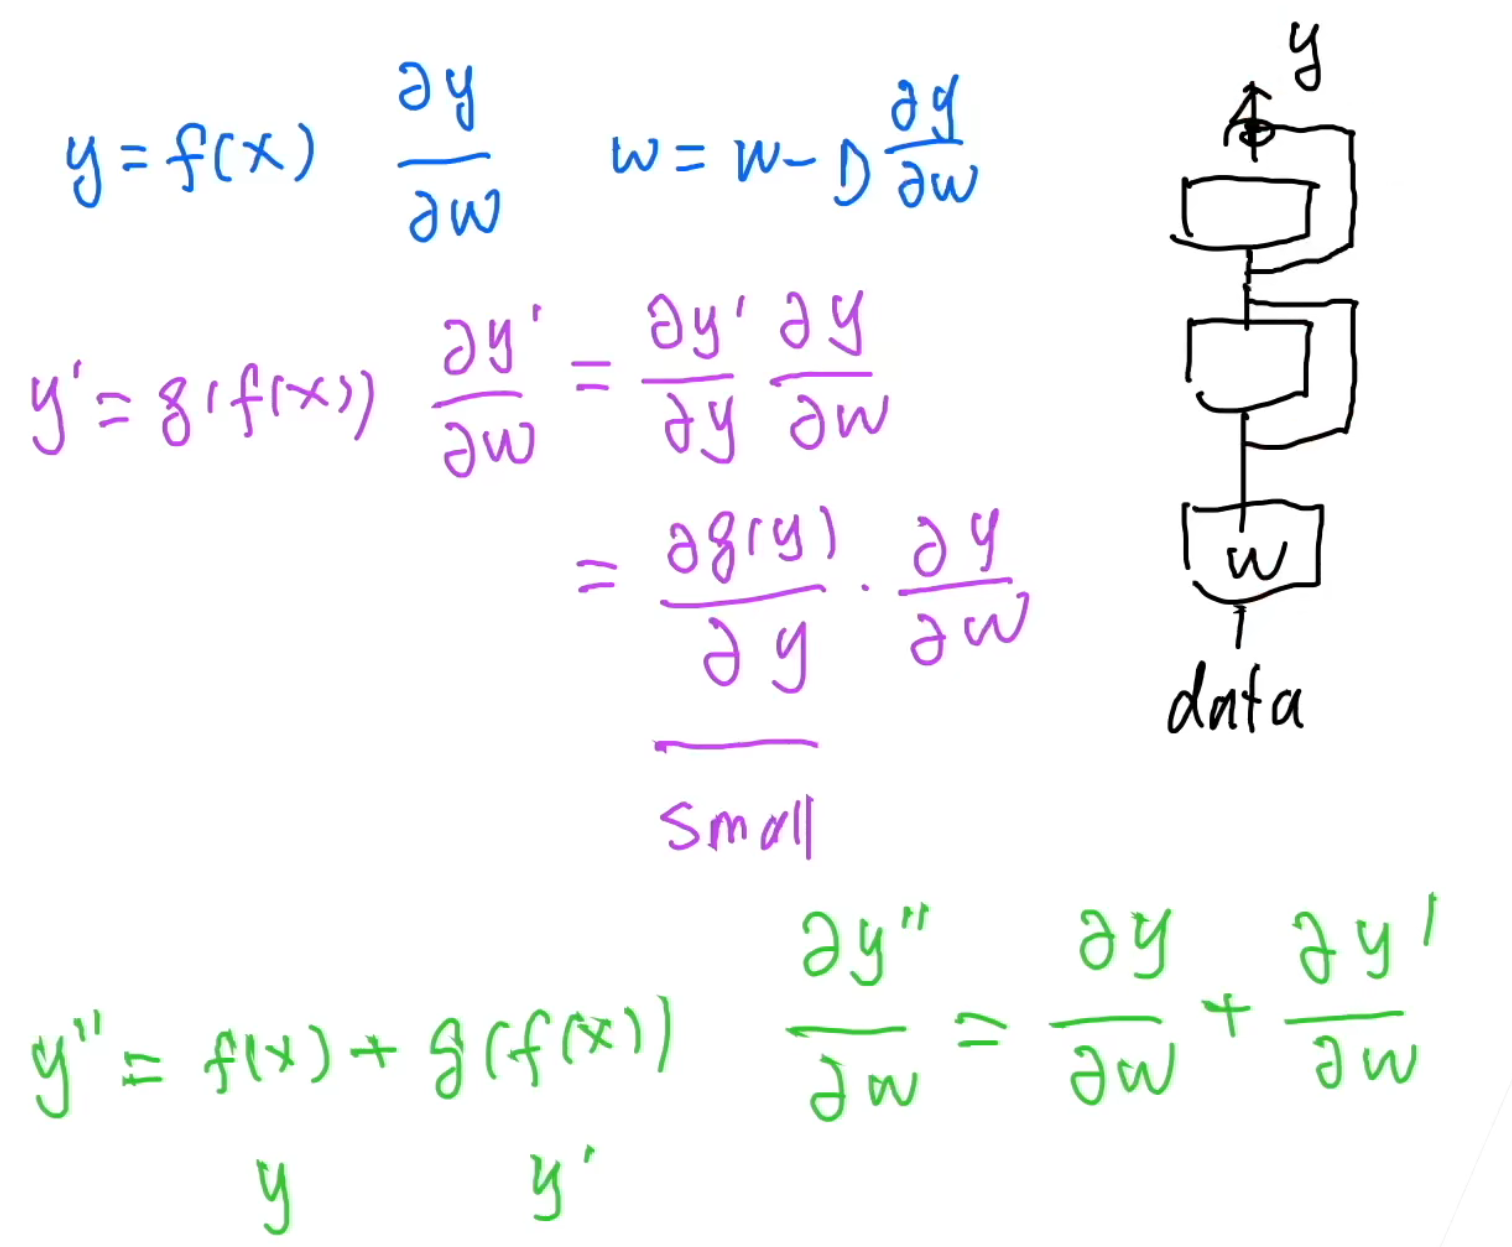 y = f(x) ∂y/∂w w = w - D ∂y/∂w
y' = g(f(x)) ∂y'/∂w = ∂y'/∂y ∂y/∂w
= ∂g(y)/∂y · ∂y/∂w
small
y'' = f(x) + g(f(x)) ∂y''/∂w = ∂y/∂w + ∂y'/∂w
y y'
y
w
data